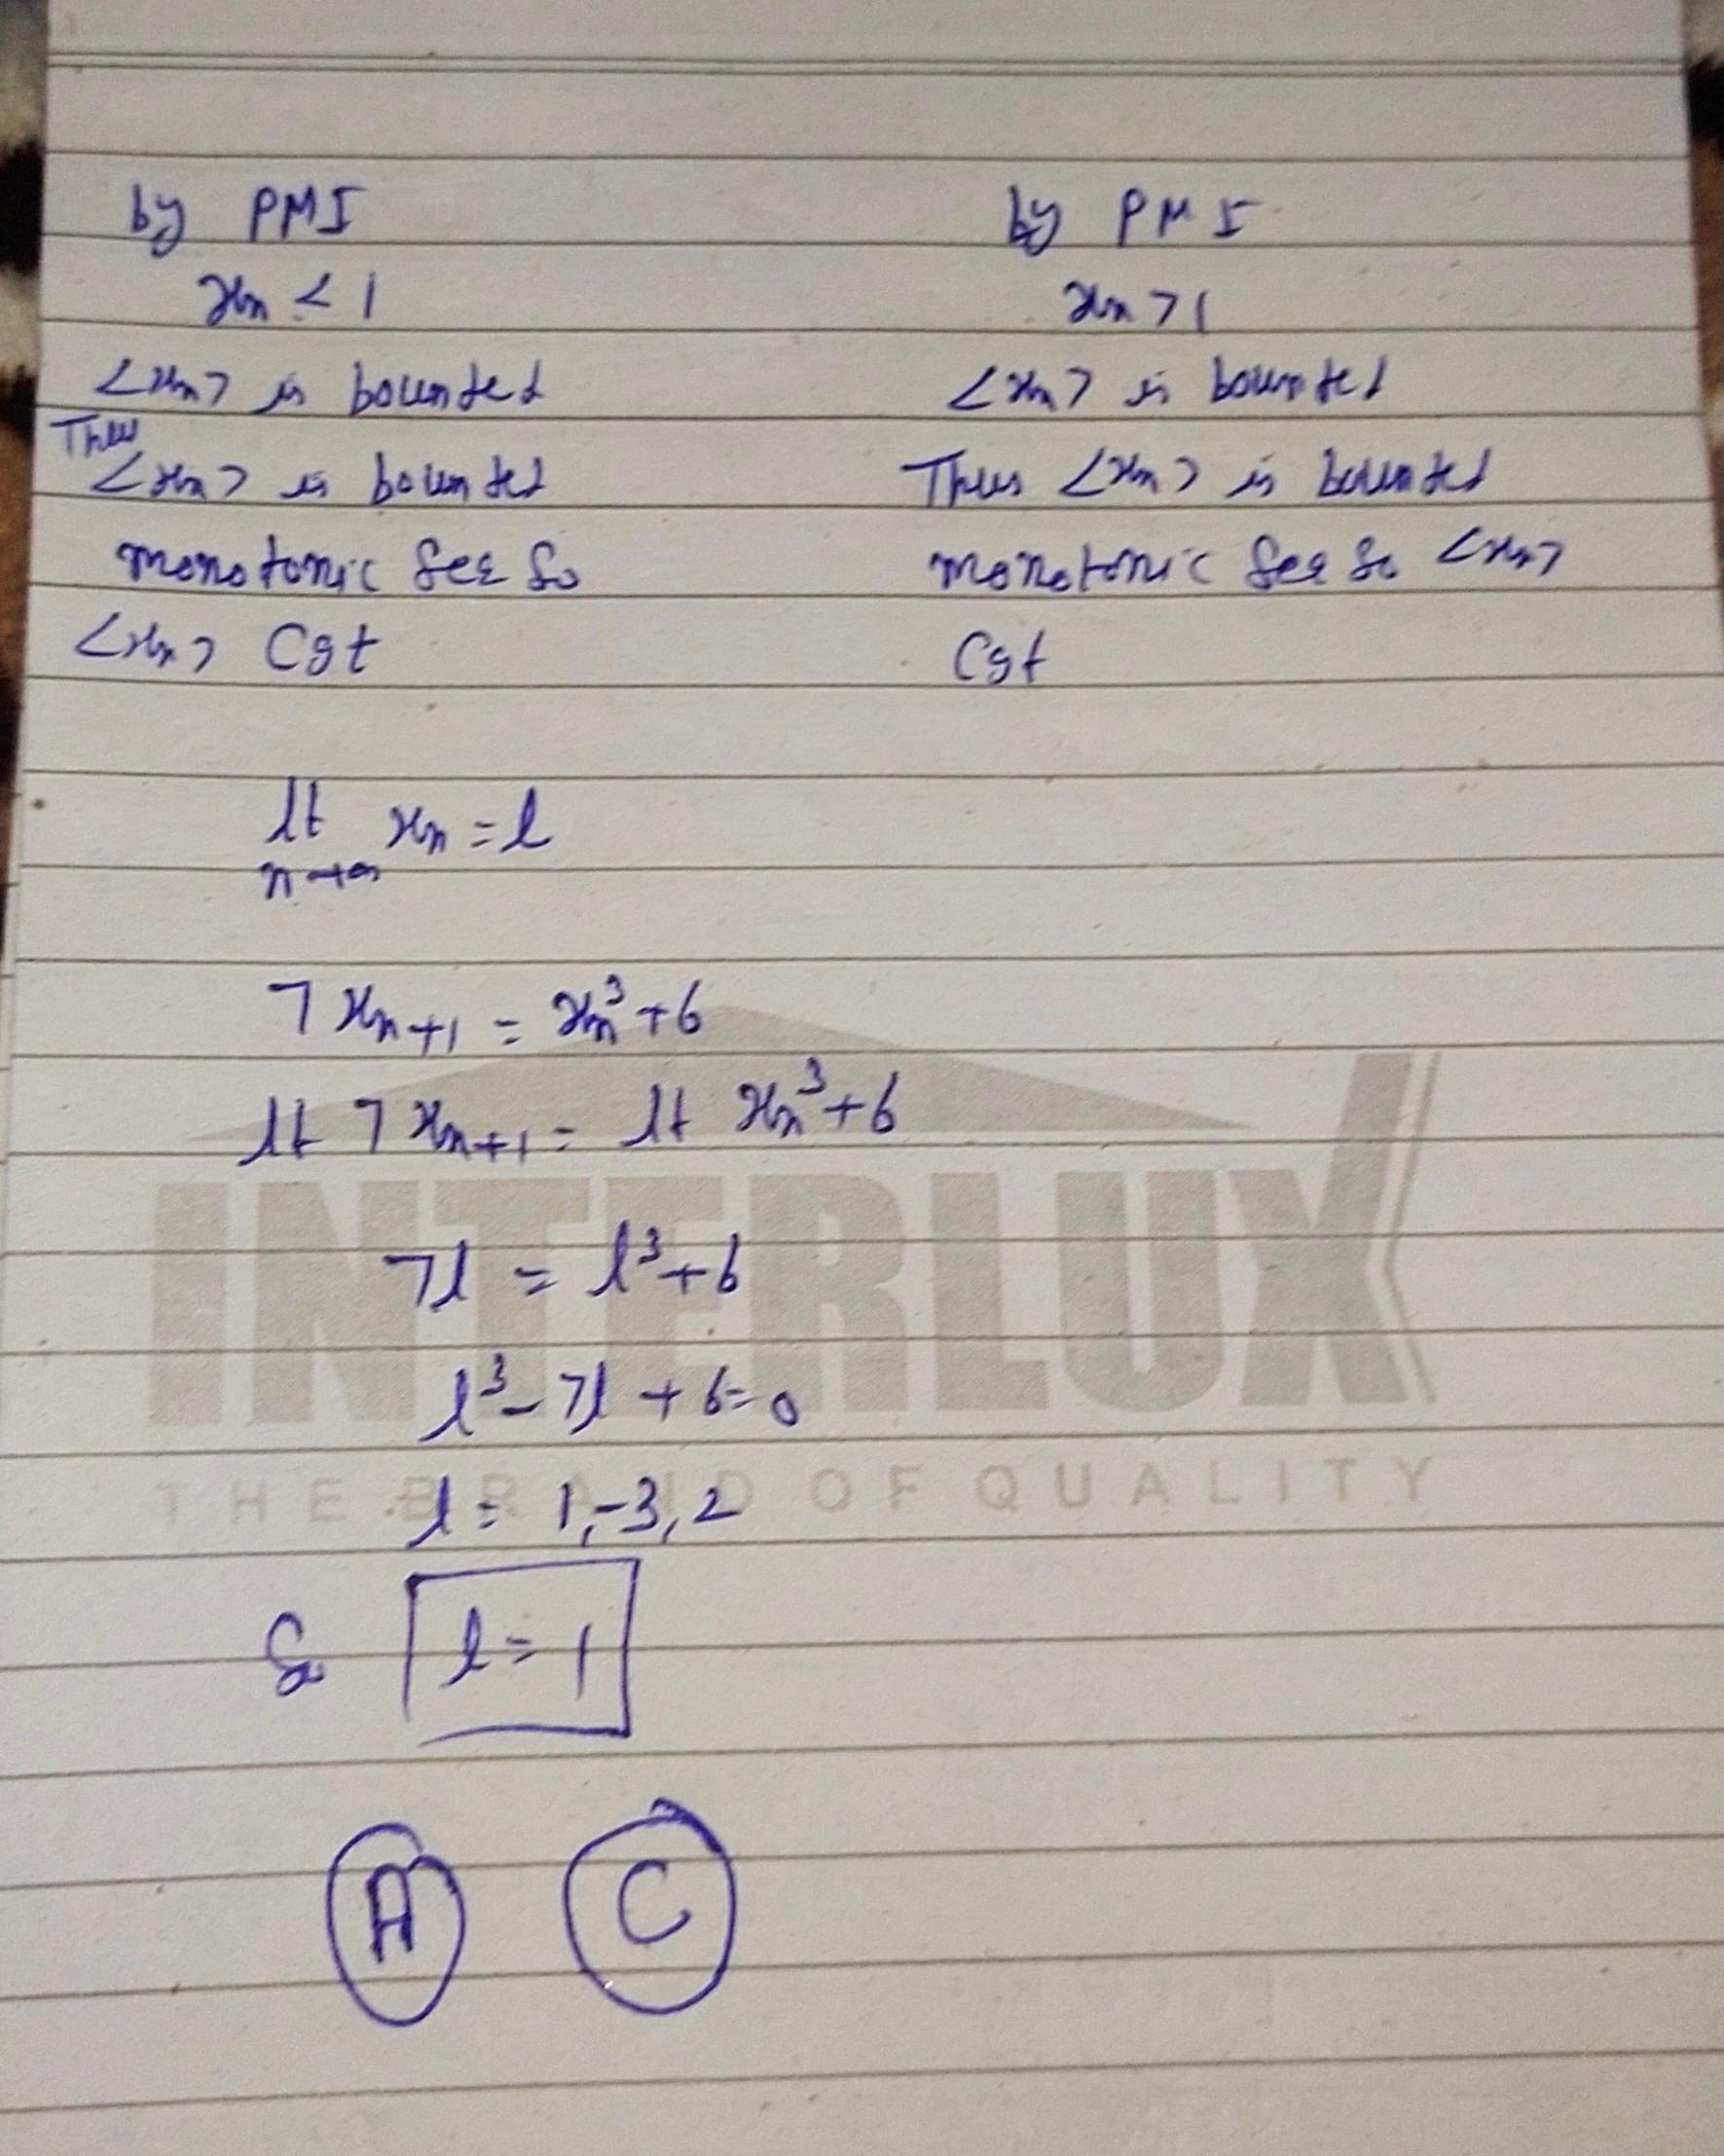 by PMI
xn < 1
<xn> is bounded
Thus
<xn> is bounded
monotonic Seq So
<xn> Cgt
by PMI
xn > 1
<xn> is bounded
Thus <xn> is bounded
monotonic Seq So <xn>
Cgt
lt xn = l
n→∞
7xn+1 = xn³+6
lt 7xn+1 = lt xn³+6
7l = l³+6
l³-7l+6=0
l = 1,-3,2
So l=1
A C
INTERLUX
THE BRAND OF QUALITY